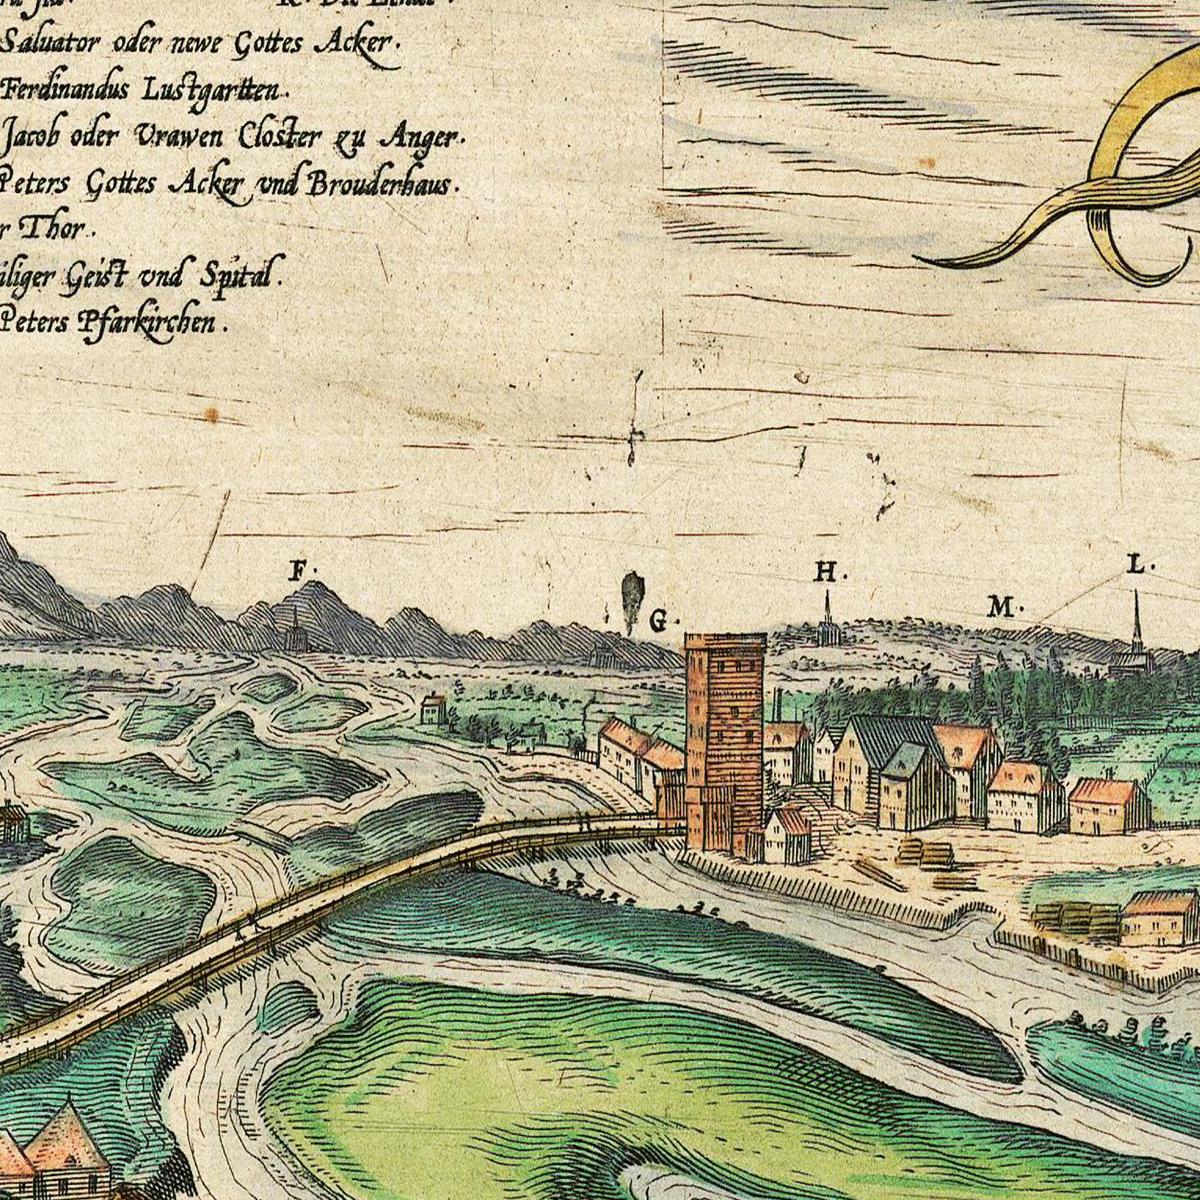 Saluator oder newe Gottes Acker.
Ferdinandus Lustgartten.
Jacob oder Vrawen Closter zu Anger.
Peters Gottes Acker vnd Brouderhaus.
r Thor.
iliger Geist vnd Spital.
Peters Pfarkirchen.
F.
H.
L.
M.
G.